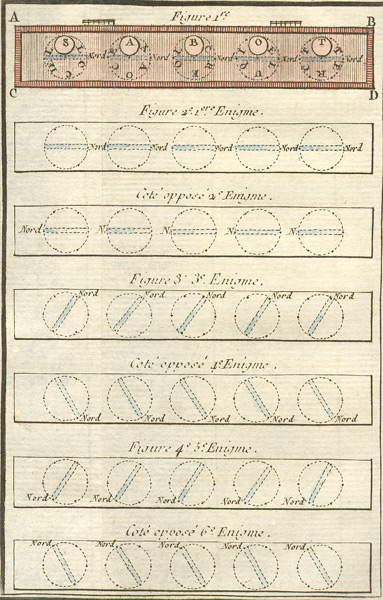 Figure 1.re
A B
S A B O T
Nord Nord Nord Nord Nord
C D
Figure 2.e 1.ere Enigme.
Nord Nord Nord Nord Nord
Coté opposé 2.e Enigme.
Nord N. N. N. N.
Figure 3.e 3.e Enigme.
Nord Nord Nord Nord Nord
Coté opposé 4.e Enigme.
Nord Nord Nord Nord Nord
Figure 4.e 5.e Enigme.
Nord Nord Nord Nord Nord
Coté opposé 6.e Enigme.
Nord Nord Nord Nord Nord